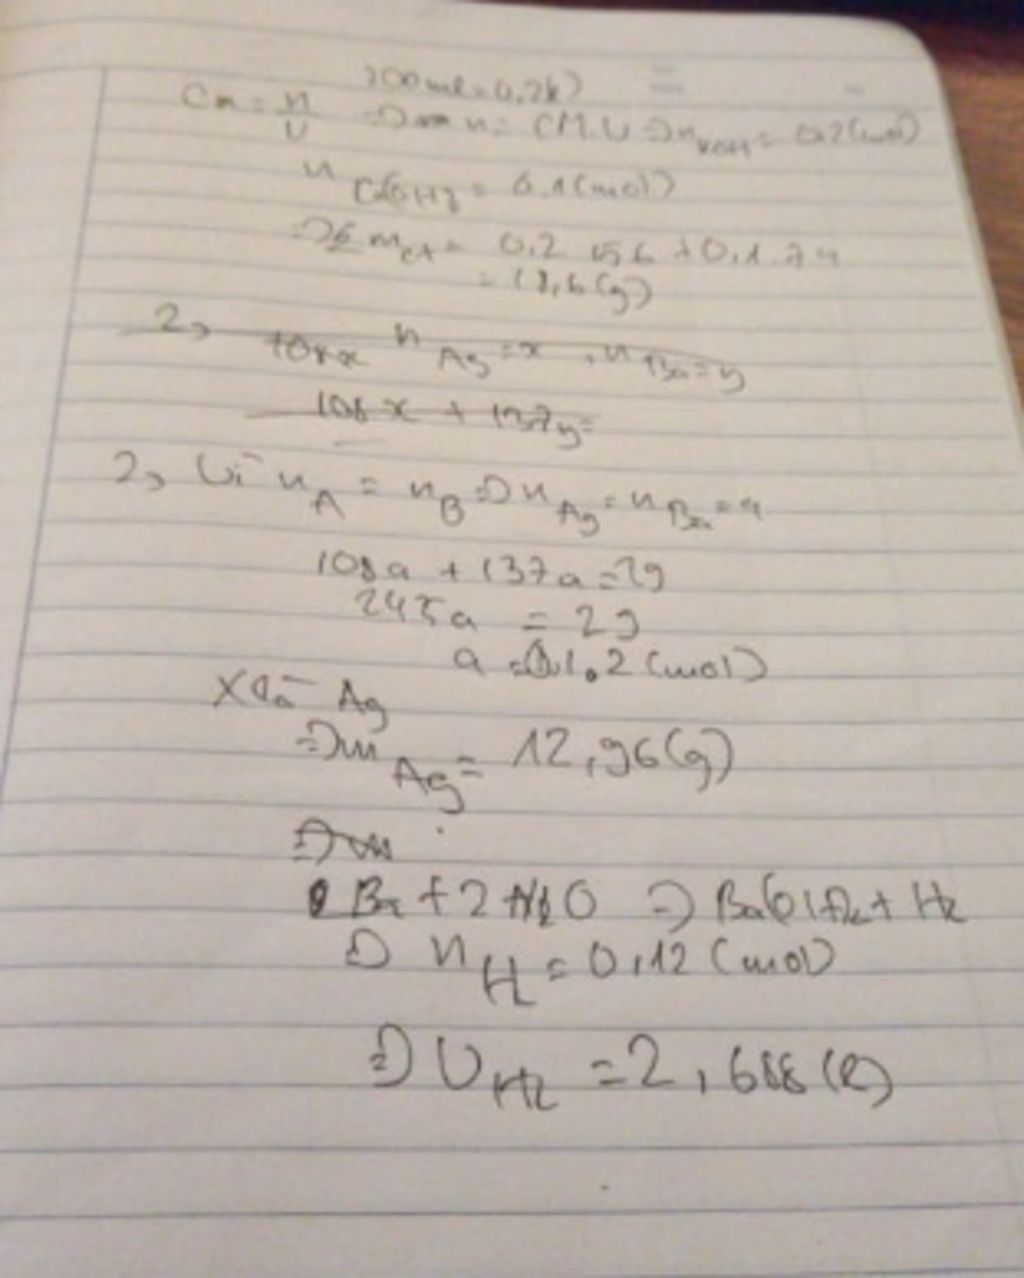 200ml = 0,2l
Cm = n/V => n = CM.V => nKOH = 0.2(mol)
n = 0.1(mol)
=> mct = 0,2.56 + 0,1.74
= 18,6(g)
2, 108x nAg = x, nBa = y
108x + 137y =
2, Vì nA = nB => nAg = nBa = a
108a + 137a = 29
245a = 29
a = 0.1.2(mol)
Ag
=> mAg = 12,96(g)
=> m
Ba + 2H2O => Ba(OH)2 + H2
=> nH = 0,12(mol)
=> VH2 = 2,688(l)